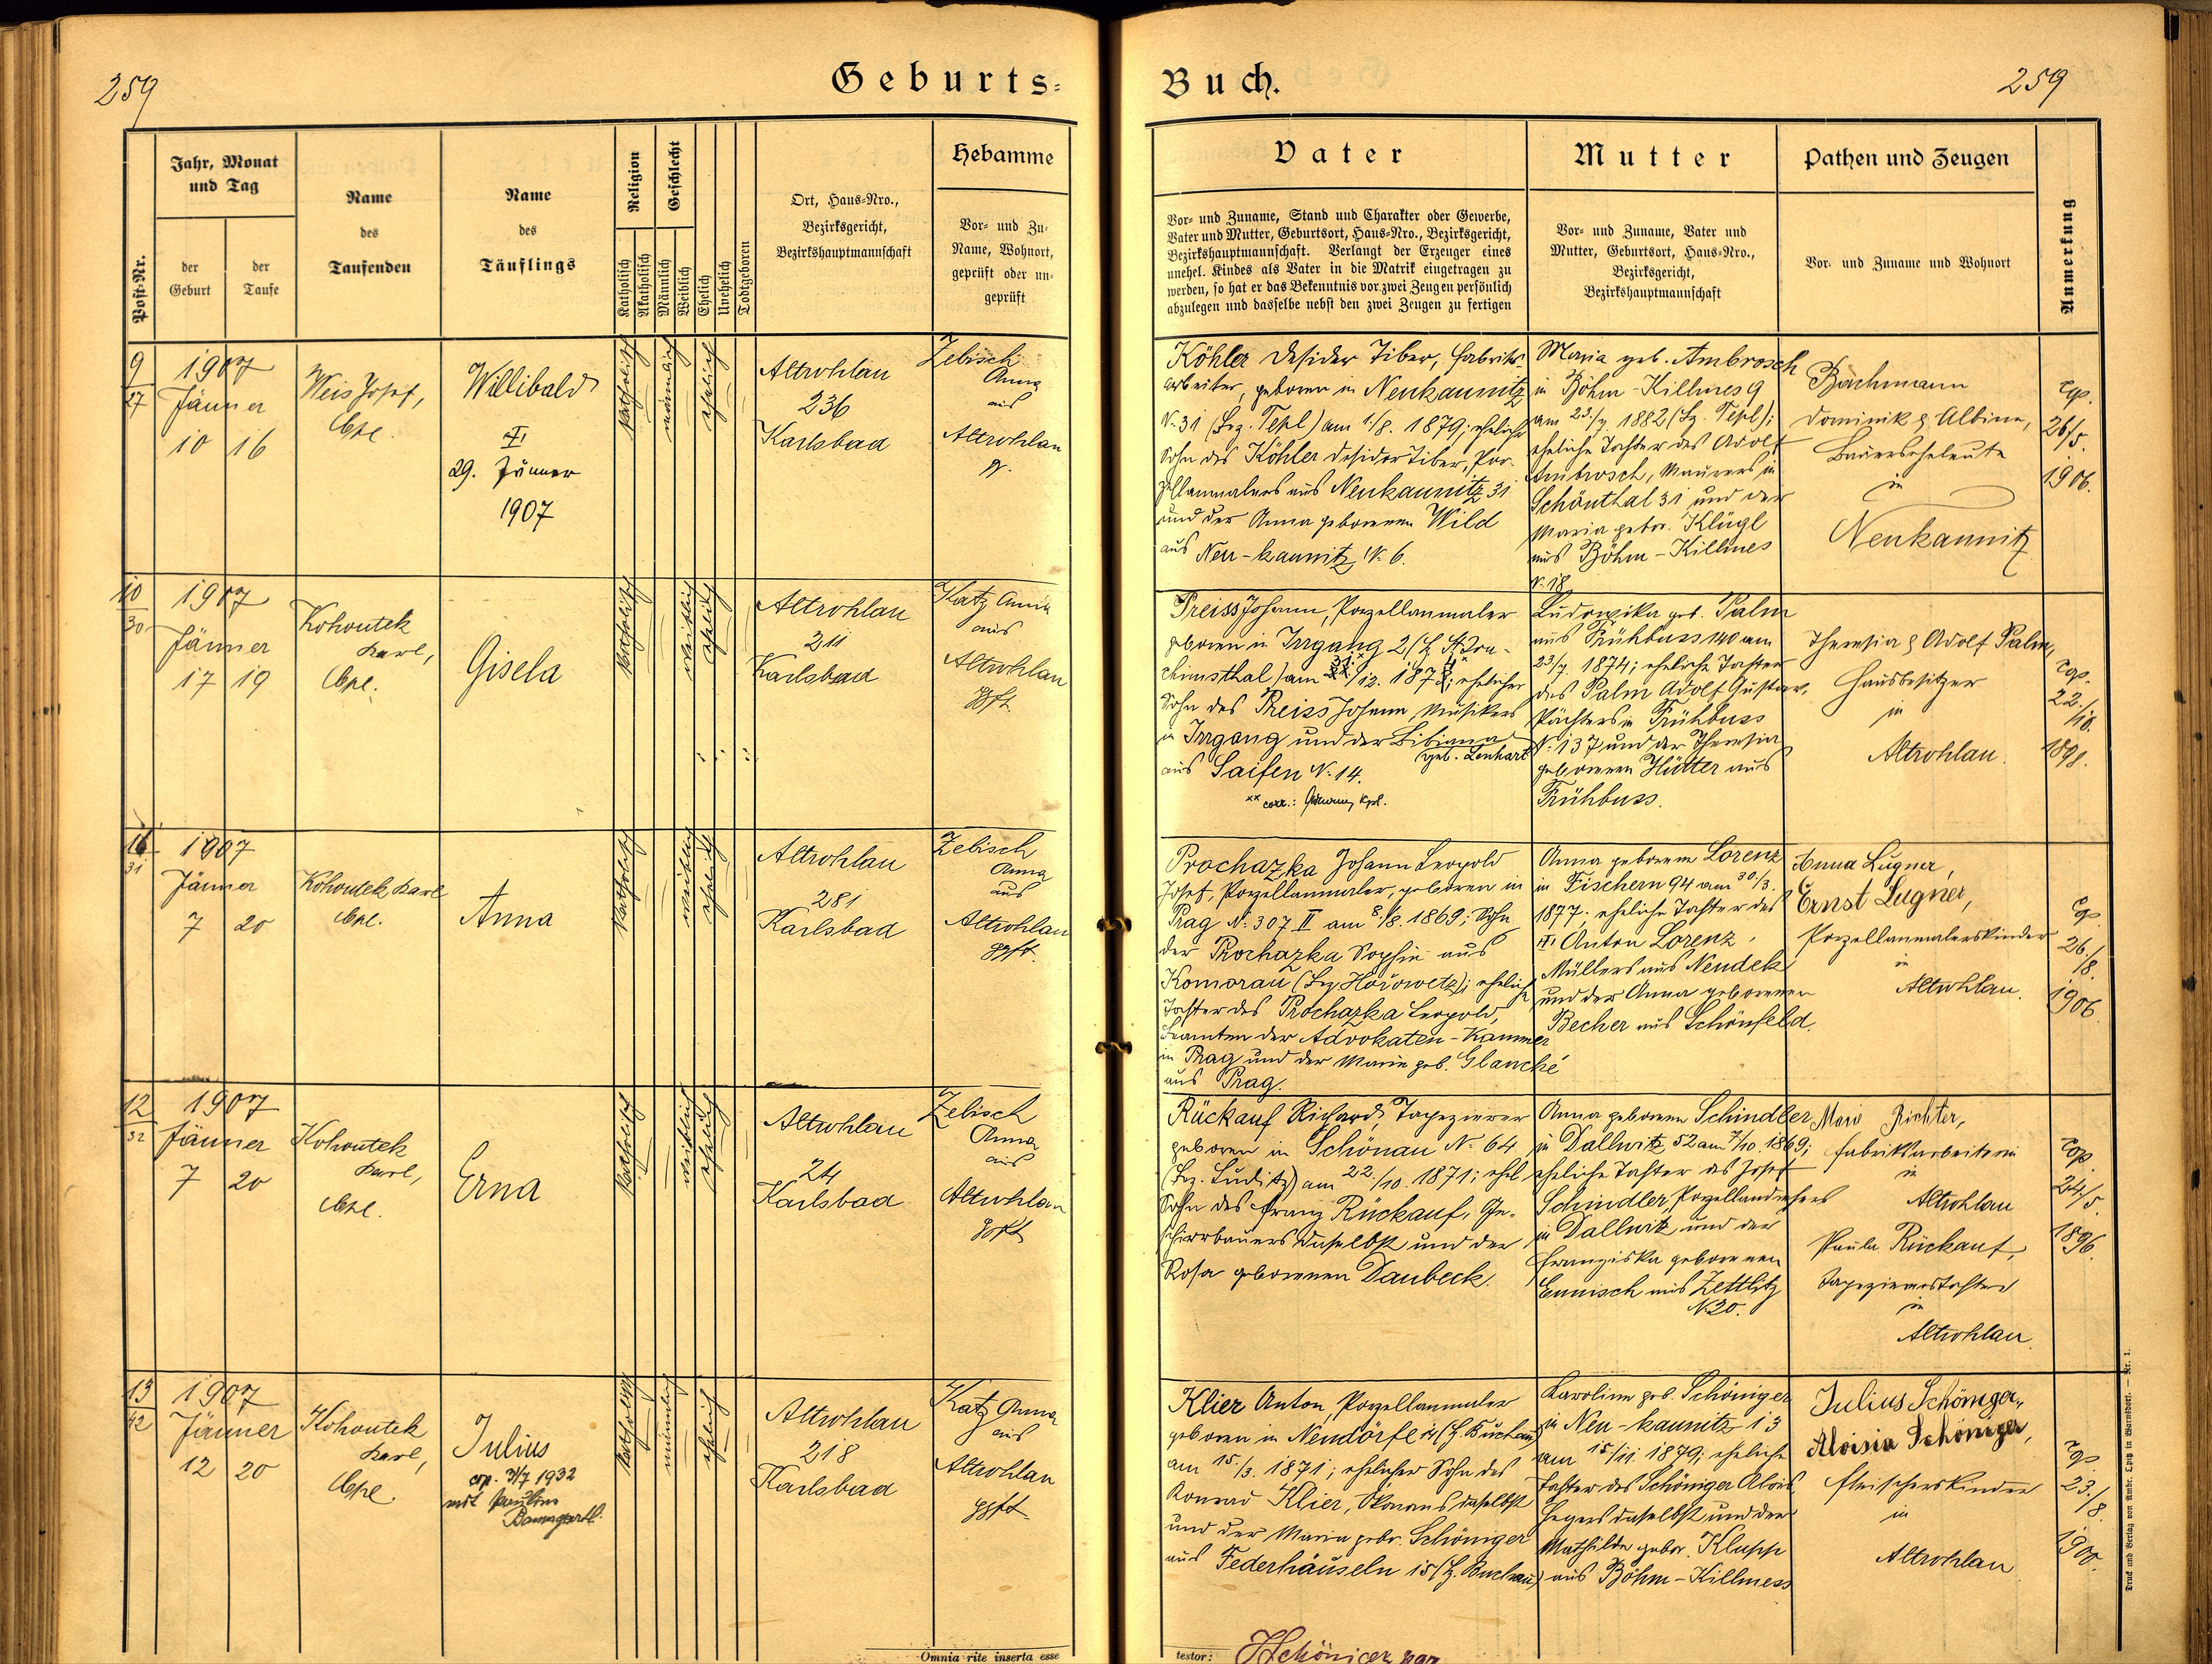 259
Geburts-
Buch.
259
Post-Nr.
Jahr, Monat
und Tag
der
Geburt
der
Taufe
Name
des
Taufenden
Name
des
Täuflings
Religion
Katholisch
Akatholisch
Geschlecht
Männlich
Weiblich
Ehelich
Unehelich
Todtgeboren
Ort, Haus-Nro.,
Bezirksgericht,
Bezirkshauptmannschaft
Hebamme
Vor- und Zu-
Name, Wohnort,
geprüft oder un-
geprüft
Vater
Vor- und Zuname, Stand und Charakter oder Gewerbe,
Vater und Mutter, Geburtsort, Haus-Nro., Bezirksgericht,
Bezirkshauptmannschaft. Verlangt der Erzeuger eines
unehel. Kindes als Vater in die Matrik eingetragen zu
werden, so hat er das Bekenntnis vor zwei Zeugen persönlich
abzulegen und dasselbe nebst den zwei Zeugen zu fertigen
Mutter
Vor- und Zuname, Vater und
Mutter, Geburtsort, Haus-Nro.,
Bezirksgericht,
Bezirkshauptmannschaft
Pathen und Zeugen
Vor- und Zuname und Wohnort
Anmerkung
9
27
1907
Jänner
10 16
Weis Josef,
Cpl.
Willibald
29. Jänner
1907
katholisch
männlich
ehelich
Altrohlau
236
Karlsbad
Zebisch
Anna
aus
Altrohlau
Köhler Desider Tiber, Fabriks-
arbeiter, geboren in Neukaunitz
N. 31 (Bzg. Tepl) am 1./8. 1879; ehelicher
Sohn des Köhler Desider Tiber, Por-
zellanmalers aus Neukaunitz 31
und der Anna geborenen Wild
aus Neu-kaunitz N. 6.
Maria geb. Ambrosch
in Böhm-Killmes 9
am 23./7 1882 (Bz. Tepl);
eheliche Tochter des Adolf
Ambrosch, Maurers in
Schönthal 31 und der
Maria gebor. Klügl
aus Böhm-Killmes
N. 18
Bachmann
Dominik & Albine,
Bauerseheleute
in
Neukaunitz
cop.
26/5.
1906.
10
30
1907
Jänner
17 19
Kohoutek
Karl,
Cpl.
Gisela
katholisch
weiblich
ehelich
Altrohlau
211
Karlsbad
Katz Anna
aus
Altrohlau
gpft.
Preiss Johann, Porzellanmaler
geboren in Irrgang 2 (Bz. Joa-
chimsthal) am 31./12. 187; ehelicher
Sohn des Preiss Johann, Musikers
in Irrgang und der Bibiana
geb. Lenhart
aus Saifen N. 14.
xx corr.: Kpl.
Ludowika geb. Palm
aus Frühbuss 140 am
23./7 1874; eheliche Tochter
des Palm Adolf Gustav,
Pächters in Frühbuss
N. 137 und der Theresia
geborenen Hütter aus
Frühbuss.
Theresia & Adolf Palm,
Hausbesitzer
in
Altrohlau.
cop.
22./10.
1898.
11
31
1907
Jänner
7 20
Kohoutek Karl
Cpl.
Anna
katholisch
weiblich
eheliche
Altrohlau
281
Karlsbad
Zebisch
Anna
aus
Altrohlau
gpft.
Prochazka Johann Leopold
Josef, Porzellanmaler, geboren in
Prag N. 307 II am 8./8. 1869; Sohn
der Prochazka Sophie aus
Komorau (Bz. Hořowetz); eheliche
Tochter des Prochazka Leopold,
Beamten der Advokaten-Kammer
in Prag und der Marie geb. Glanché
aus Prag.
Anna geborene Lorenz
in Fischern 94 am 30./3.
1877; eheliche Tochter des
Anton Lorenz,
Müllers aus Neudek
und der Anna geborenen
Becher aus Schönfeld.
Anna Lugner,
Ernst Lugner,
Porzellanmalerskinder
in
Altrohlau.
cop
26./8.
1906.
12
32
1907
Jänner
7 20
Kohoutek
Karl,
Cpl.
Erna
katholisch
weiblich
ehelich
Altrohlau
24
Karlsbad
Zebisch
Anna
aus
Altrohlau
gpft
Rückauf Richard, Tapezierer
geboren in Schönau N. 64
(Bz. Luditz) am 22./10. 1871; ehel
Sohn des Franz Rückauf, Ge-
schirrbauers daselbst und der
Rosa geborenen Daubeck.
Anna geborene Schindler
in Dallwitz 52 am 7./10. 1869;
eheliche Tochter des Josef
Schindler, Porzellandrehers
in Dallwitz und der
Franziska geborenen
Ennisch aus Zettlitz
N. 20.
Marie Richter,
Fabriksarbeiterin
in
Altrohlau
Paula Rückauf,
Tapeziererstochter
in
Altrohlau.
cop
24./5.
1896.
13
42
1907
Jänner
12 20
Kohoutek
Karl,
Cpl.
Julius
cop. 31/7 1932
mit Pauline
Baumgartl.
katholisch
männlich
ehelich
Altrohlau
218
Karlsbad
Katz Anna
aus
Altrohlau
gpft
Klier Anton, Porzellanmaler
geboren in Neudörfel 4 (Bz. Buchau)
am 15./3. 1871; ehelicher Sohn des
Konrad Klier, Ökonoms daselbst
und der Maria gebor. Schöniger
aus Federhäuseln 15 (Bz. Buchau)
Karoline geb. Schöniger
in Neu-kaunitz 13
am 15./11. 1879; eheliche
Tochter des Schöniger Alois,
Hegers daselbst und der
Mathilde gebor. Klupp
aus Böhm-Killmess
Julius Schöniger,
Aloisia Schöniger,
Fleischerskinder
in
Altrohlau
cop
23./8.
1900.
Omnia rite inserta esse
testor:
Schöniger
Druck und Verlag von Ambr. Opitz in Warnsdorf. — Nr. 1.